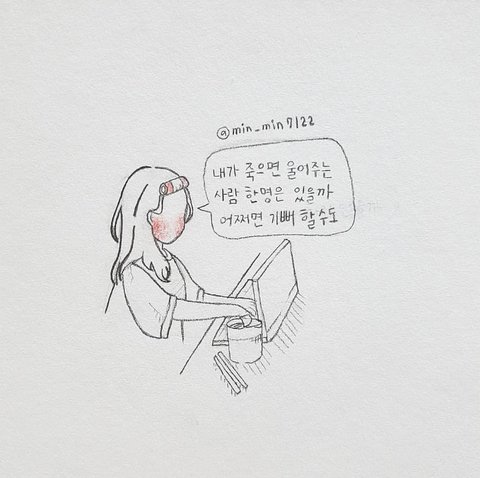 @min_min7122
내가 죽으면 울어주는
사람 한명은 있을까
어쩌면 기뻐 할수도